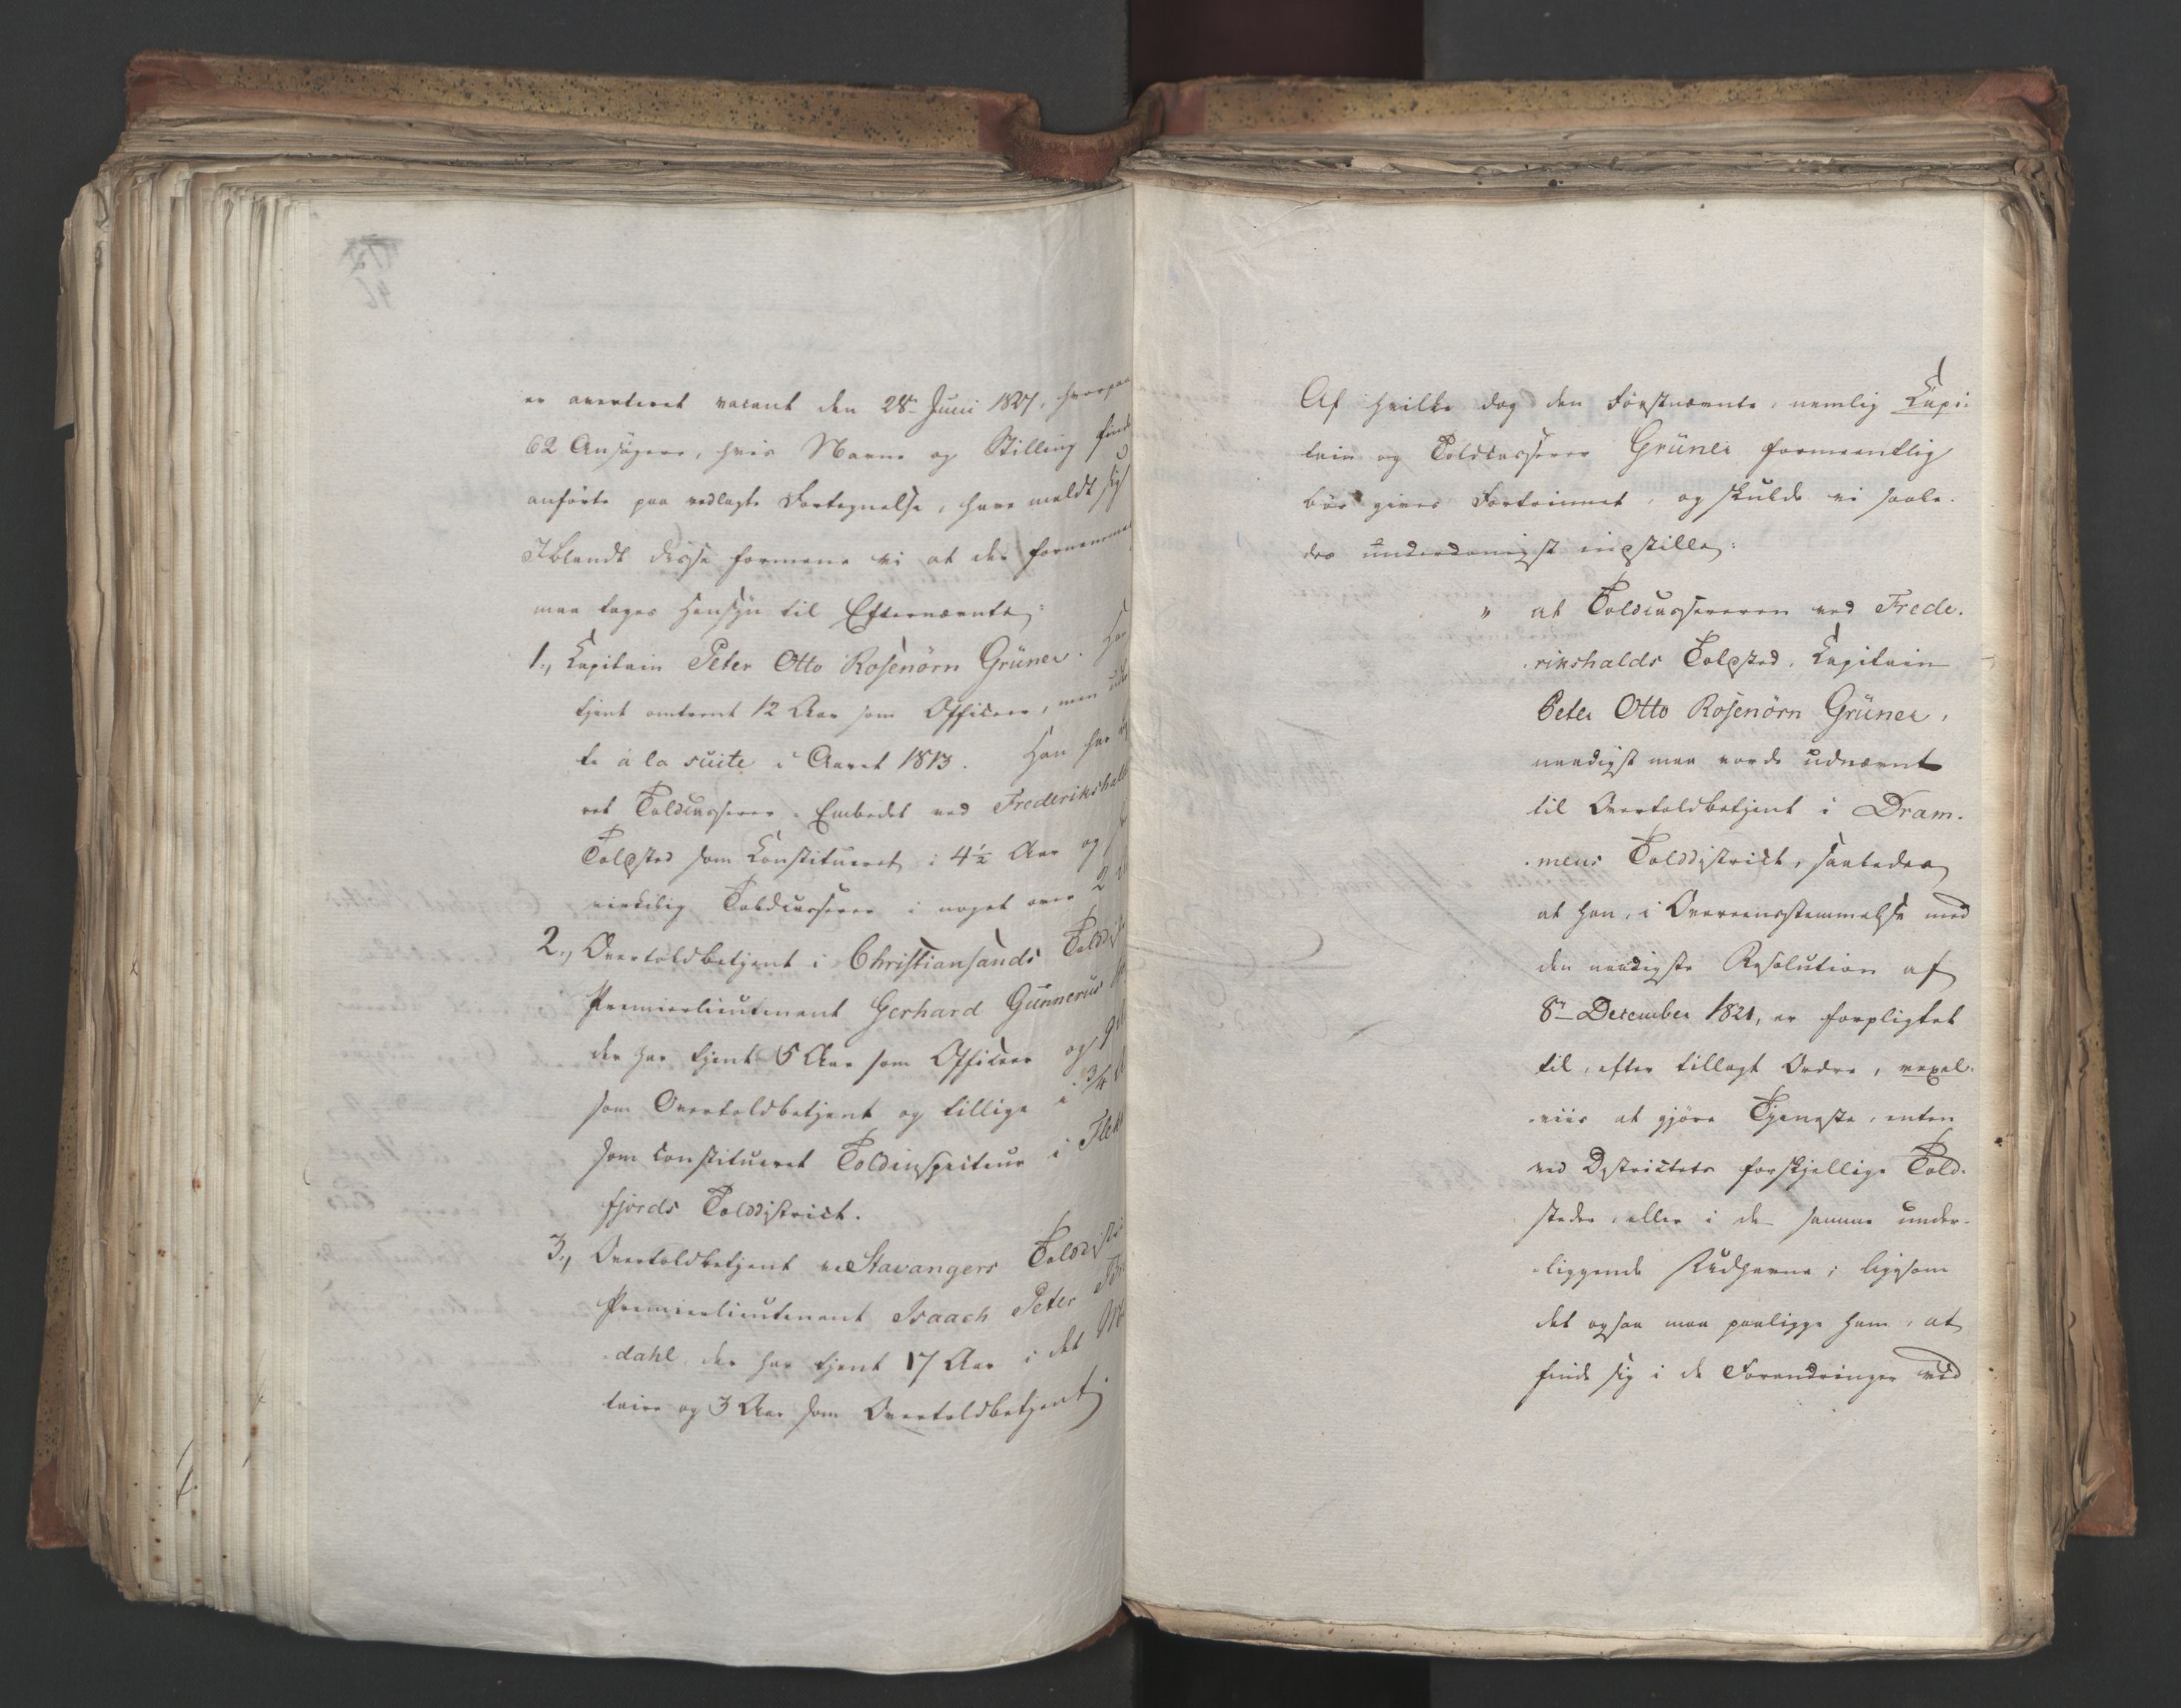 er averteret vacant den 28de Juni 1827, hvorpaa
62 Ansøgere, hvis Navne og Stilling find
anførte paa vedlagte Fortegnelse, have meldt sig
Iblandt disse formene vi at der fornemme
maa tages Hensyn til Efternævnte:
1., Capitain Peter Otto Rosenörn Grüner. Har
tjent omtrent 12 Aar som Officeer, men
te à la suite i Aaret 1813. Han har
ret Toldcasserer-Embedet ved Frederikshald
Toldsted som Constitueret i 4½ Aar og
virkelig Toldcasserer i noget over 2
2., Overtoldbetjent i Christiansands Tolddi
Premierlieutenant Gerhard Gunnerus
der har tjent 5 Aar som Officeer og
som Overtoldbetjent og tillige i 3/4
som constitueret Toldinspecteur i Flek
fjords Tolddistrict.
3., Overtoldbetjent i Stavangers Tolddist
Premierlieutenant Isaach Peter
dahl, der har tjent 17 Aar i det Mi
taire og 3 Aar som Overtoldbetjent;
Af hvilke dog den Førstnævnte, nemlig Capi-
tain og Toldcasserer Grüner formeentlig
bør gives Fortrinnet, og skulde vi saale-
des underdanigst indstille:
" at Toldcassereren ved Frede-
rikshalds Toldsted, Capitain
Peter Otto Rosenörn Grüner,
naadigst maa vorde udnævnt
til Overtoldbetjent i Dram-
mens Tolddistrict, saaledes
at han, i Overeensstemmelse med
den naadigste Resolution af
8de December 1821, er forpligtet
til, efter tillagt Ordre, vexel-
viis at gjöre Tjeneste, enten
ved Districtets forskjellige Told-
steder, eller i de samme under-
liggende Udhavne; ligesom
det ogsaa maa paaligge ham, at
finde sig i de Forandringer ved